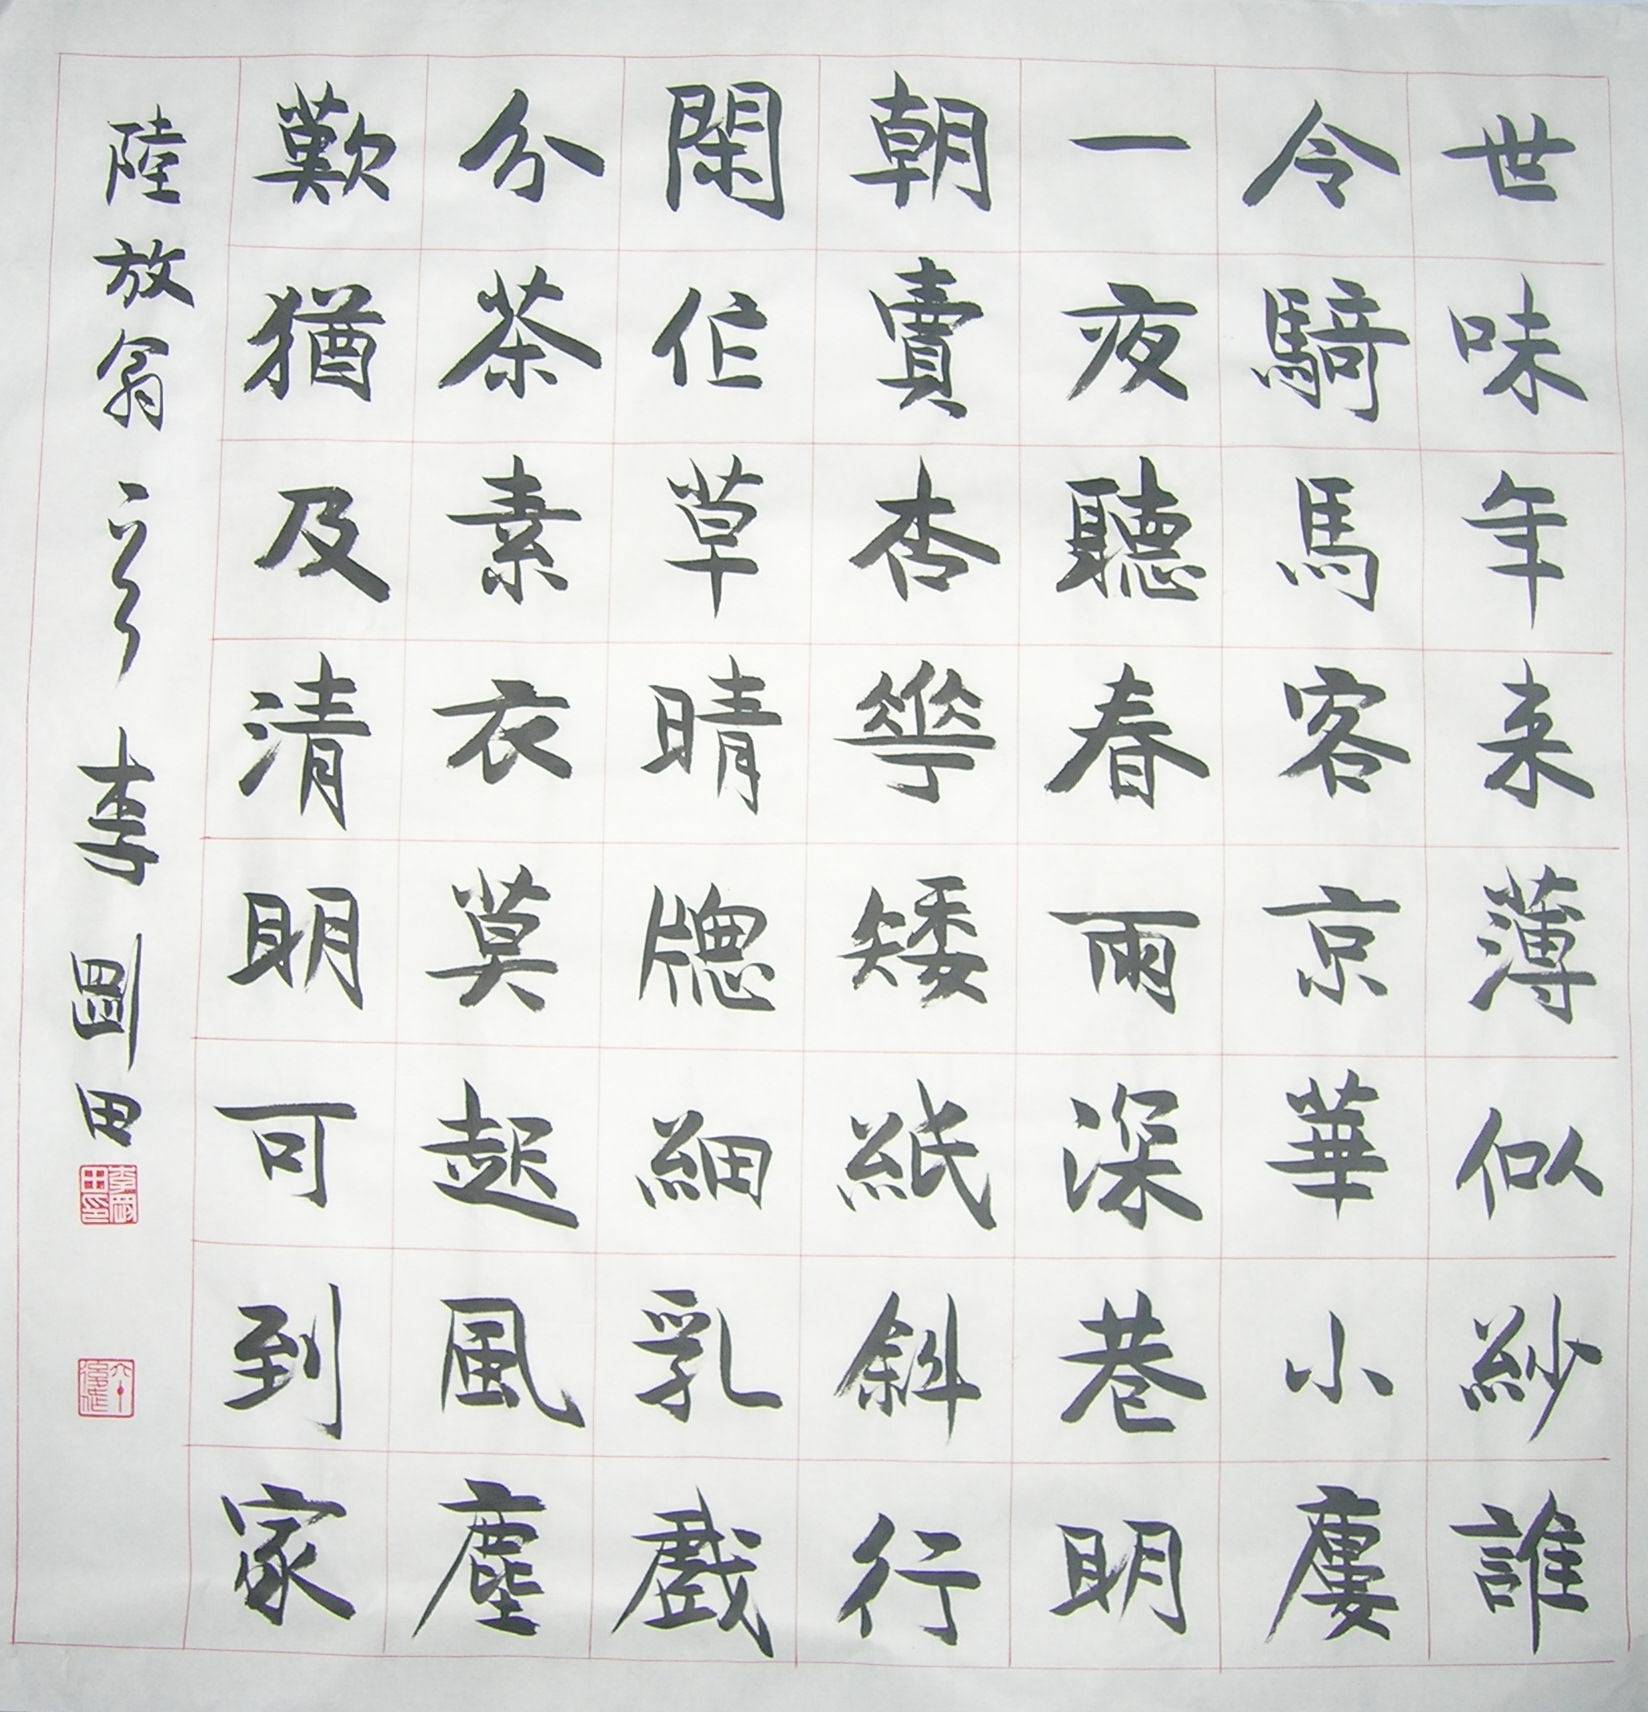 世味年来薄似紗誰
令騎馬客京華小廔
一夜聽春雨深巷明
朝賣杏𠌶矮紙斜行
閑作草晴牕細乳戲
分茶素衣莫起風塵
歎猶及清明可到家
陸放翁 李剛田
李剛田印